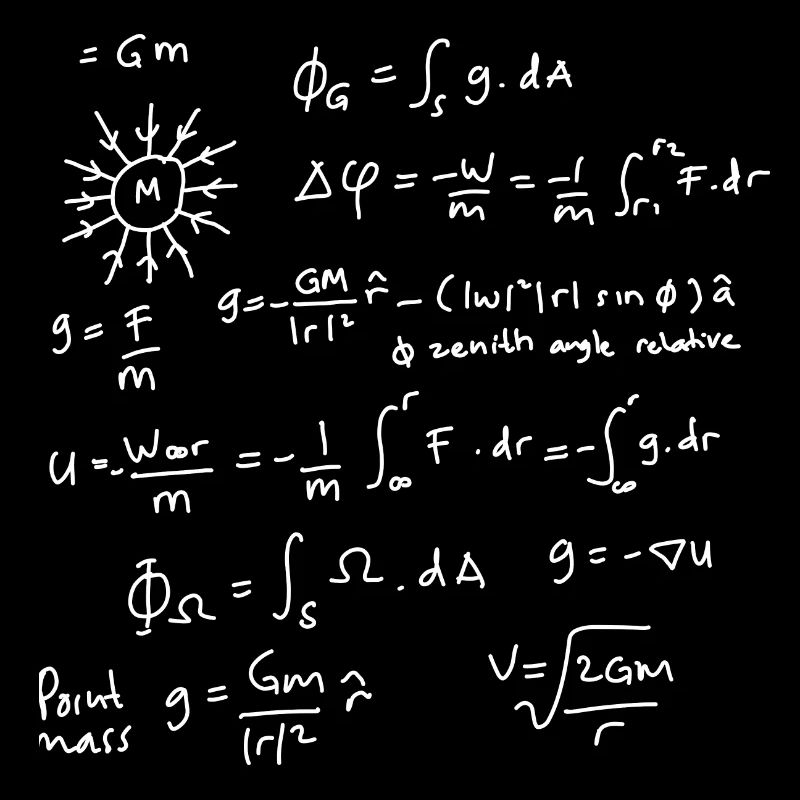 = Gm
ϕ_G = ∫_S g. dA
M
Δφ = -W/m = -1/m ∫_r1^r2 F.dr
g = F/m
g = - GM/|r|² r̂ - (|w|²|r| sin ϕ) â
ϕ zenith angle relative
U = - W∞r/m = - 1/m ∫_∞^r F . dr = - ∫_∞^r g. dr
Φ_Ω = ∫_S Ω . dA
g = -∇U
Point mass g = Gm/|r|² r̂
V = √2Gm/r